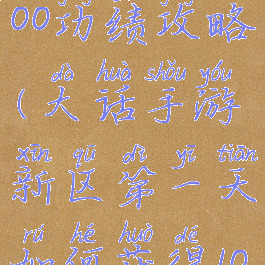 00功绩攻略
dà huà shǒu yóu
(大话手游
xīn qū dì yī tiān
新区第一天
rú hé huò dé
如何获得10